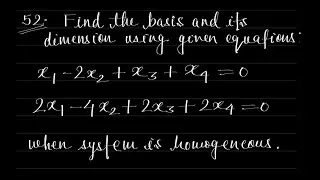 52. Find the basis and its
dimension using given equations:
x₁ - 2x₂ + x₃ + x₄ = 0
2x₁ - 4x₂ + 2x₃ + 2x₄ = 0
when system is homogeneous.